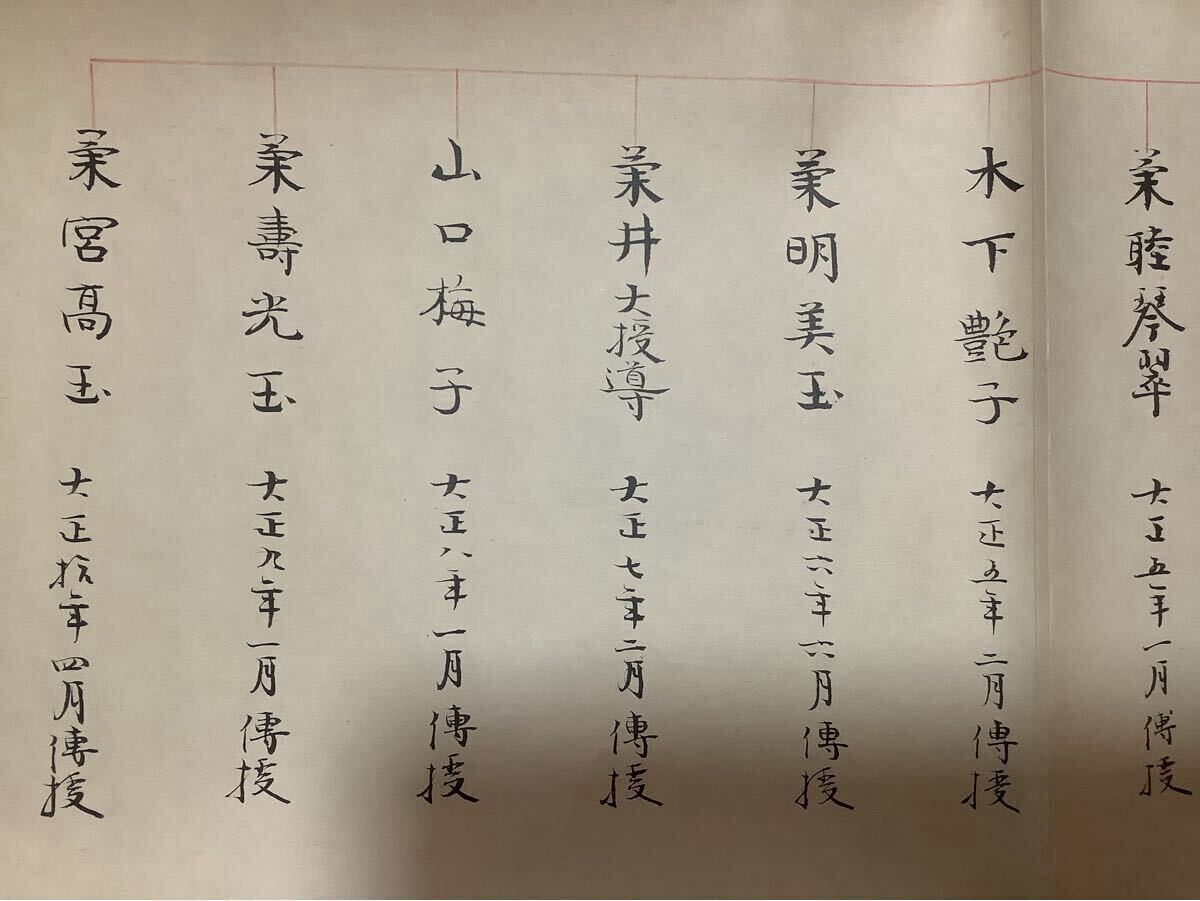 菊睦琴翠 大正五年一月傳授
木下艶子 大正五年二月傳授
菊明美玉 大正六年六月傳授
菊井大授導 大正七年二月傳授
山口梅子 大正八年一月傳授
菊壽光玉 大正九年一月傳授
菊宮髙玉 大正拾年四月傳授